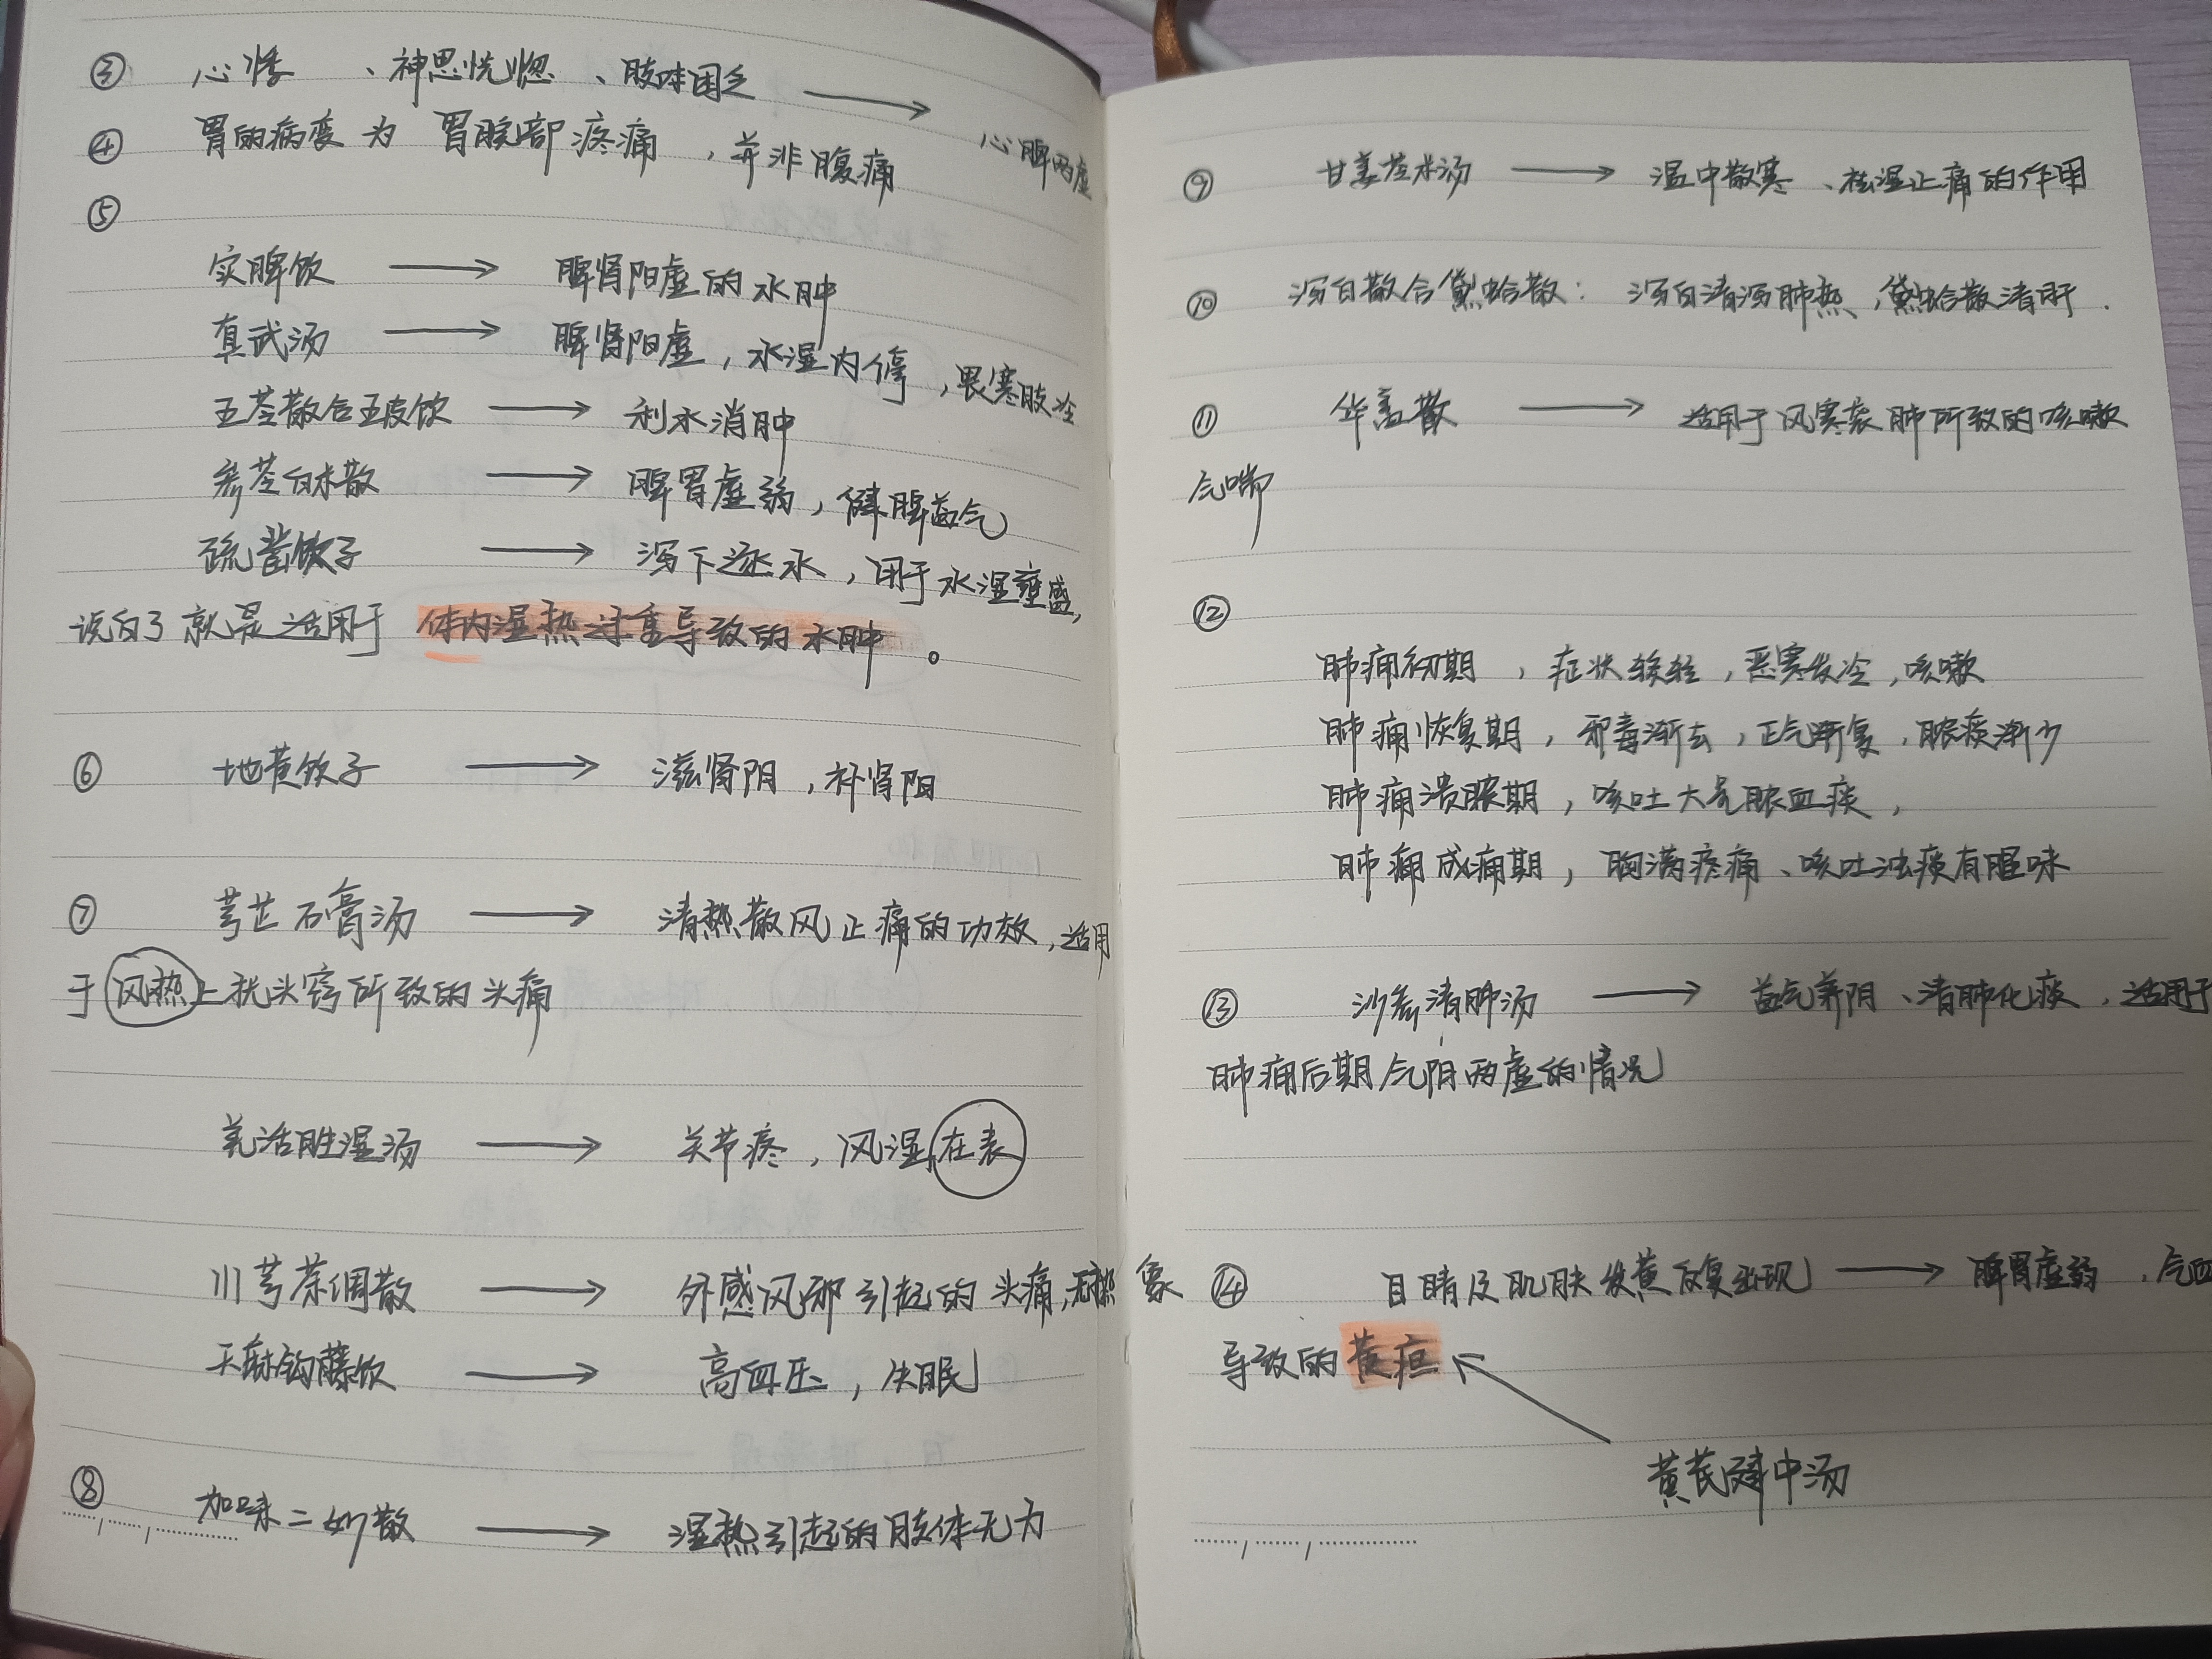 ③ 心悸 、神思恍惚 、肢体困乏 → 心脾两虚
④ 胃的病变为 胃脘部疼痛 ，并非腹痛
⑤
实脾饮 → 脾肾阳虚的水肿
真武汤 → 脾肾阳虚，水湿内停，畏寒肢冷
五苓散合五皮饮 → 利水消肿
参苓白术散 → 脾胃虚弱，健脾益气
疏凿饮子 → 泻下逐水，用于水湿壅盛，
说白了就是适用于 体内湿热过重导致的水肿 。
⑥ 地黄饮子 → 滋肾阴，补肾阳
⑦ 芎芷石膏汤 → 清热散风止痛的功效，适用
于风热上扰头窍所致的头痛
羌活胜湿汤 → 关节疼，风湿在表
川芎茶调散 → 外感风邪引起的头痛，无热象
天麻钩藤饮 → 高血压，失眠
⑧ 加味二妙散 → 湿热引起的肢体无力
⑨ 甘姜苓术汤 → 温中散寒、祛湿止痛的作用
⑩ 泻白散合黛蛤散： 泻白清泻肺热，黛蛤散清肝．
⑪ 华盖散 → 适用于风寒袭肺所致的咳嗽
气喘
⑫
肺痈初期 ，症状较轻，恶寒发冷，咳嗽
肺痈恢复期，邪毒渐去，正气渐复，脓痰渐少
肺痈溃脓期，咳吐大量脓血痰，
肺痈成痈期，胸满疼痛、咳吐浊痰有腥味
⑬ 沙参清肺汤 → 益气养阴、清肺化痰，适用于
肺痈后期气阴两虚的情况
⑭ 目睛及肌肤发黄反复出现 → 脾胃虚弱 ，气血
导致的黄疸
黄芪建中汤